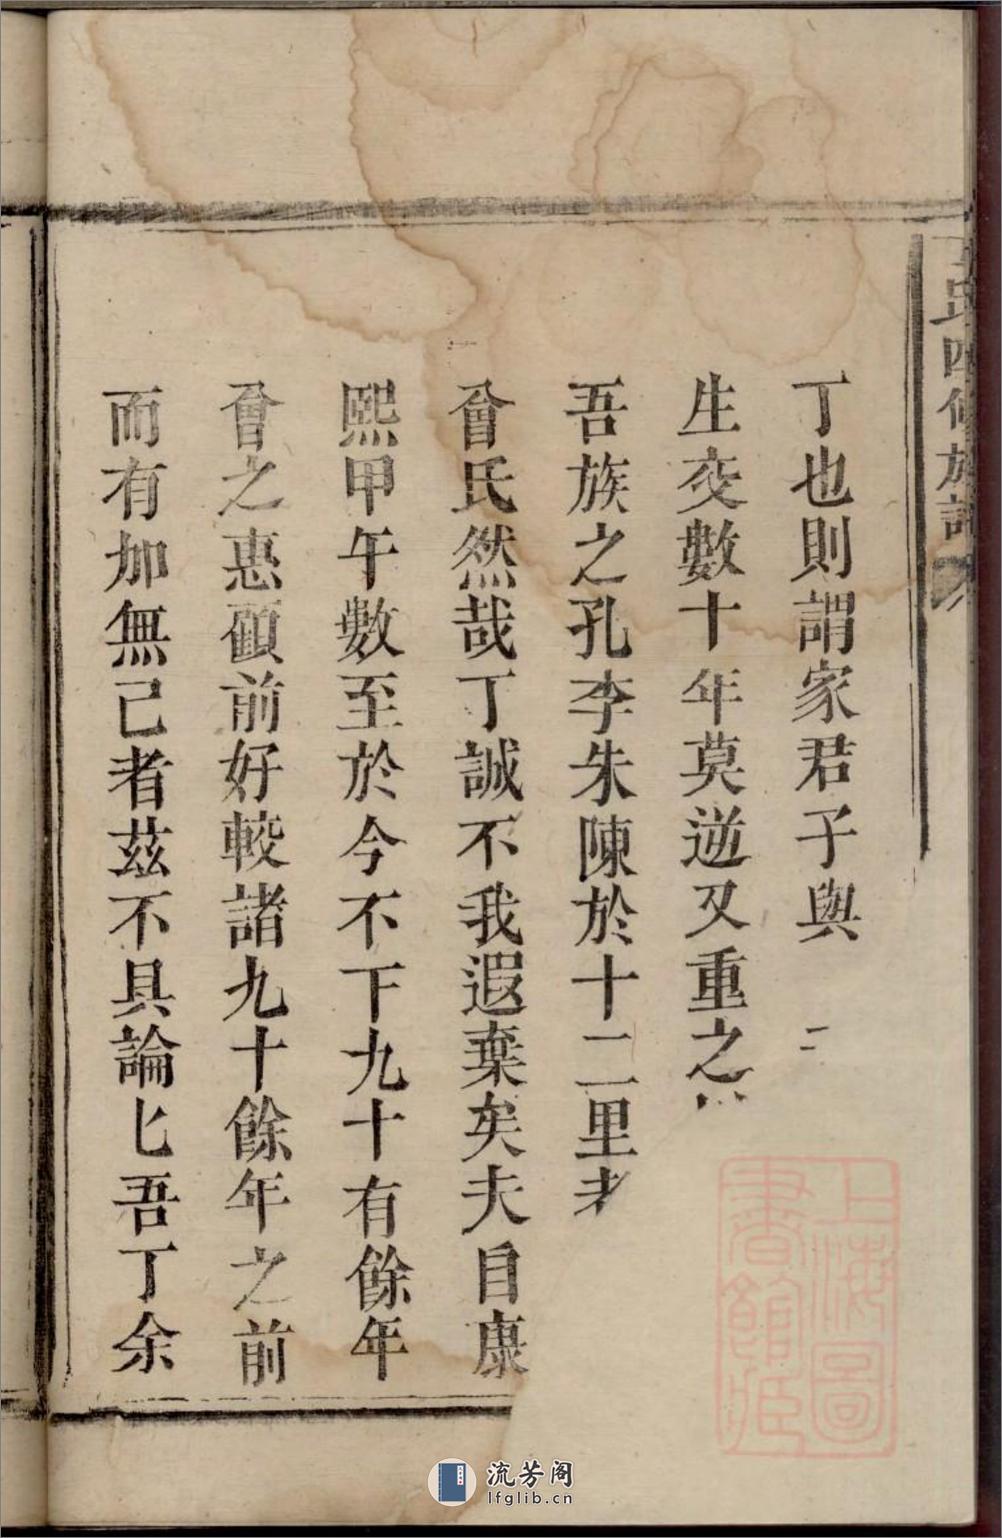 丁也則謂家君子與
生交數十年莫逆又重之
吾族之孔李朱陳於十二里者
會氏然哉丁誠不我遐棄矣夫自康
熙甲午數至於今不下九十有餘年
會之惠顧前好較諸九十餘年之前
而有加無已者茲不具論匕吾丁余
氏四修族譜
上海圖書館藏
流芳阁
lfglib.cn